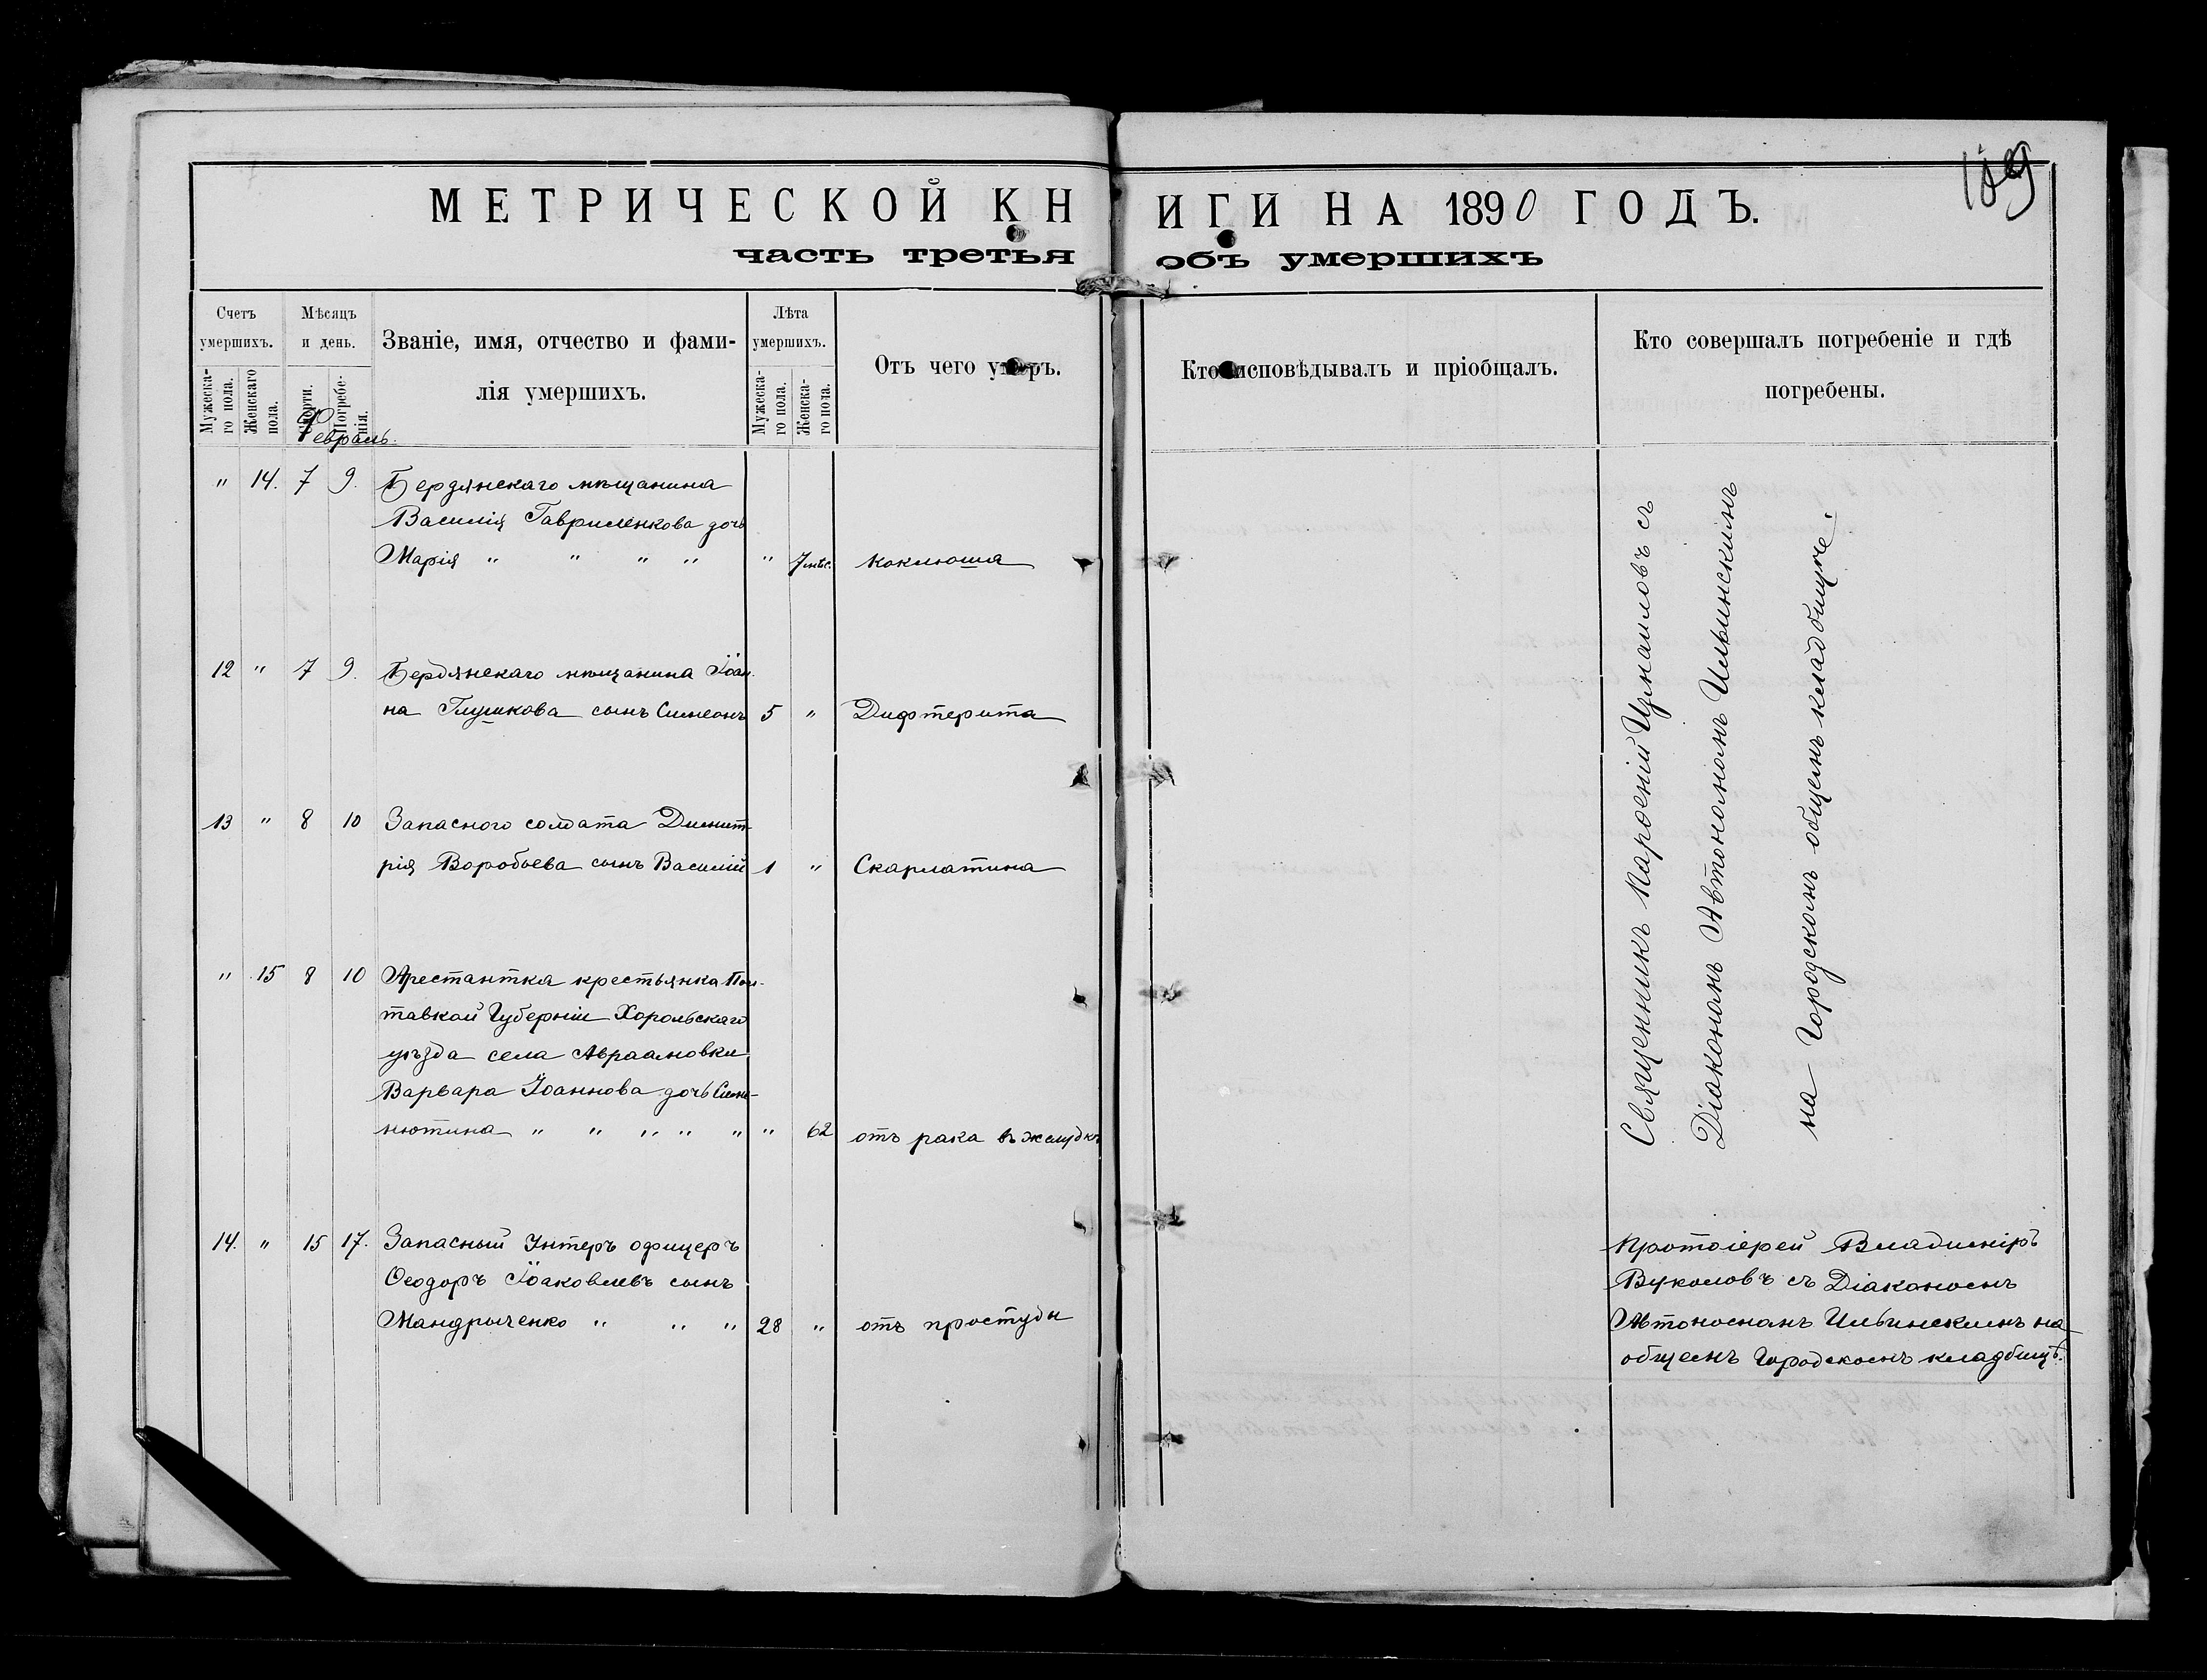 189
МЕТРИЧЕСКОЙ КНИГИ НА 1890 ГОДЪ.
часть третья объ умершихъ
Счетъ умершихъ.
Мужеска-го пола.
Женскаго пола.
Мѣсяцъ и день.
Смерти.
Погребе-нія.
Званіе, имя, отчество и фами-
лія умершихъ.
Лѣта умершихъ.
Мужеска-го пола.
Женска-го пола.
Отъ чего умеръ.
Кто исповѣдывалъ и пріобщалъ.
Кто совершалъ погребеніе и гдѣ
погребены.
Февраль.
" 14. 7 9. Бердянскаго мѣщанина
Василія Гавриленкова дочь
Марія " " " " " 7 мѣс. коклюша
12 " 7 9. Бердянскаго мѣщанина Іоан-
на Глушкова сынъ Симеонъ 5 " Дифтерита
13 " 8 10 Запасного солдата Димит-
рія Воробьева сынъ Василій 1 " Скарлатина
" 15 8 10 Арестантка крестьянка Пол-
тавкой Губерніи Хорольскаго
уѣзда села Авраамовки
Варвара Іоаннова дочь
" " " " " " 62 отъ рака въ желудкѣ
Священникъ съ
Діакономъ Автономомъ Ильинскимъ
на Городскомъ общемъ кладбищѣ.
14. " 15 17. Запасный Унтеръ офицеръ
Ѳеодоръ Іаковлевъ сынъ
Мандрыченко " " " 28 " отъ простуды
Протоіерей Владиміръ
Вуколовъ съ Діакономъ
Автономомъ Ильинскимъ на
общемъ Городскомъ кладбищѣ.